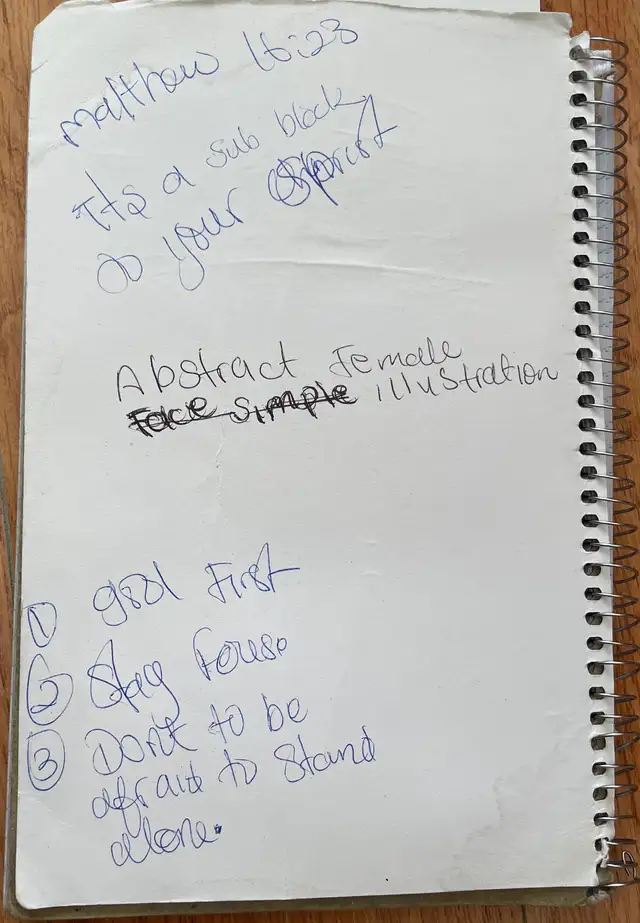 matthew 16:23
Its a sub block
to your
Abstract Female
Face Simple illustration
① god First
② Stay Fouse
③ Don't to be
afraid to Stand
alone.